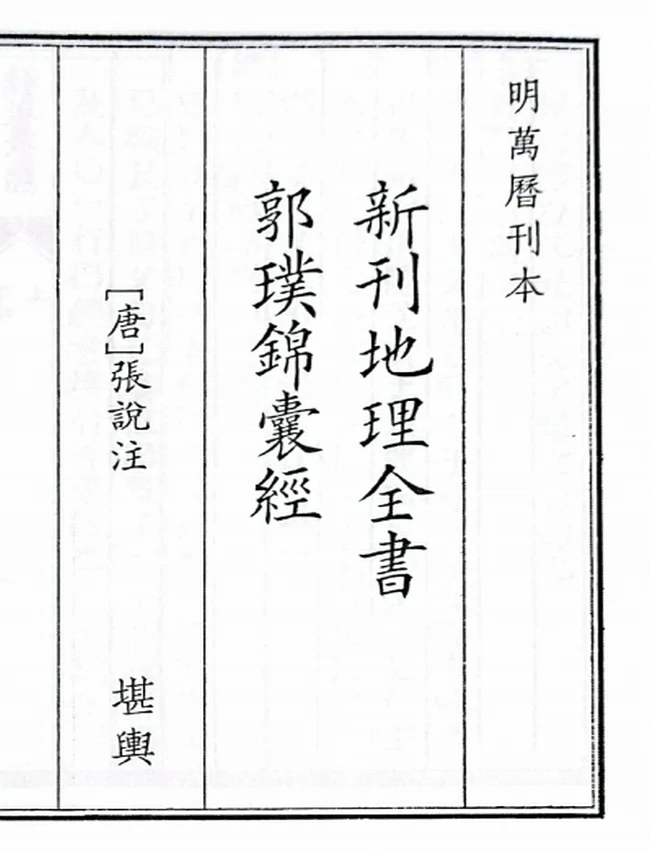 明萬曆刊本
新刊地理全書
郭璞錦囊經
［唐］張說注
堪輿